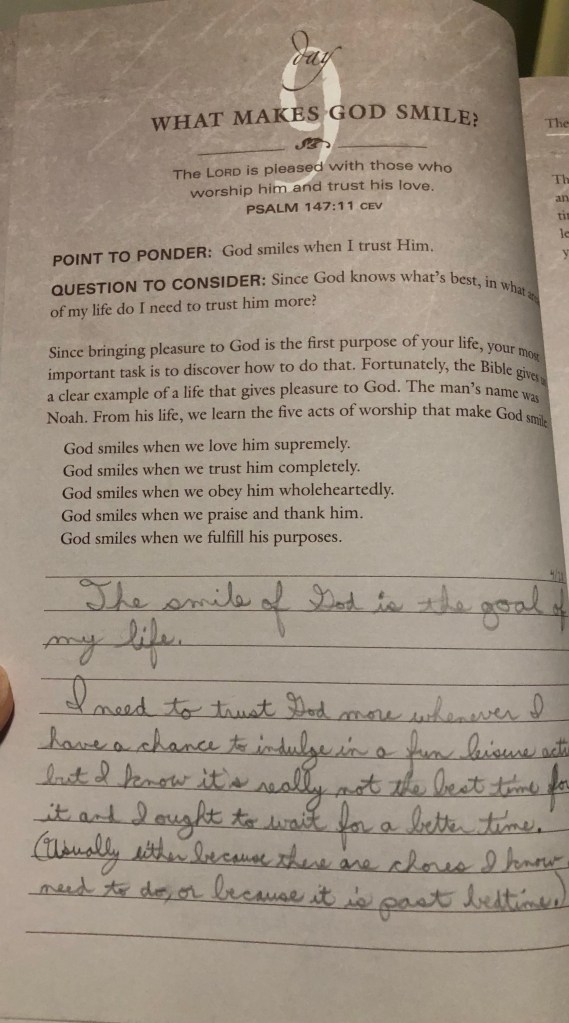 day
9
WHAT MAKES GOD SMILE?
The LORD is pleased with those who
worship him and trust his love.
PSALM 147:11 CEV
POINT TO PONDER: God smiles when I trust Him.
QUESTION TO CONSIDER: Since God knows what's best, in what
of my life do I need to trust him more?
Since bringing pleasure to God is the first purpose of your life, your most
important task is to discover how to do that. Fortunately, the Bible gives us
a clear example of a life that gives pleasure to God. The man's name was
Noah. From his life, we learn the five acts of worship that make God smile
God smiles when we love him supremely.
God smiles when we trust him completely.
God smiles when we obey him wholeheartedly.
God smiles when we praise and thank him.
God smiles when we fulfill his purposes.
The smile of God is the goal of
my life.
I need to trust God more whenever I
have a chance to indulge in a fun leisure acti
but I know it's really not the best time for
it and I ought to wait for a better time.
(Usually either because there are chores I know
need to do, or because it is past bedtime.)
The
Th
an
tir
le
y